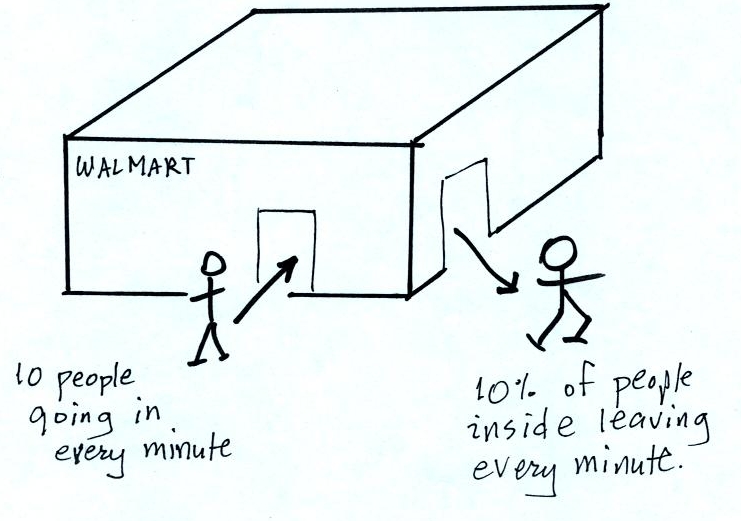 WALMART
10 people
going in
every minute
10% of people
inside leaving
every minute.